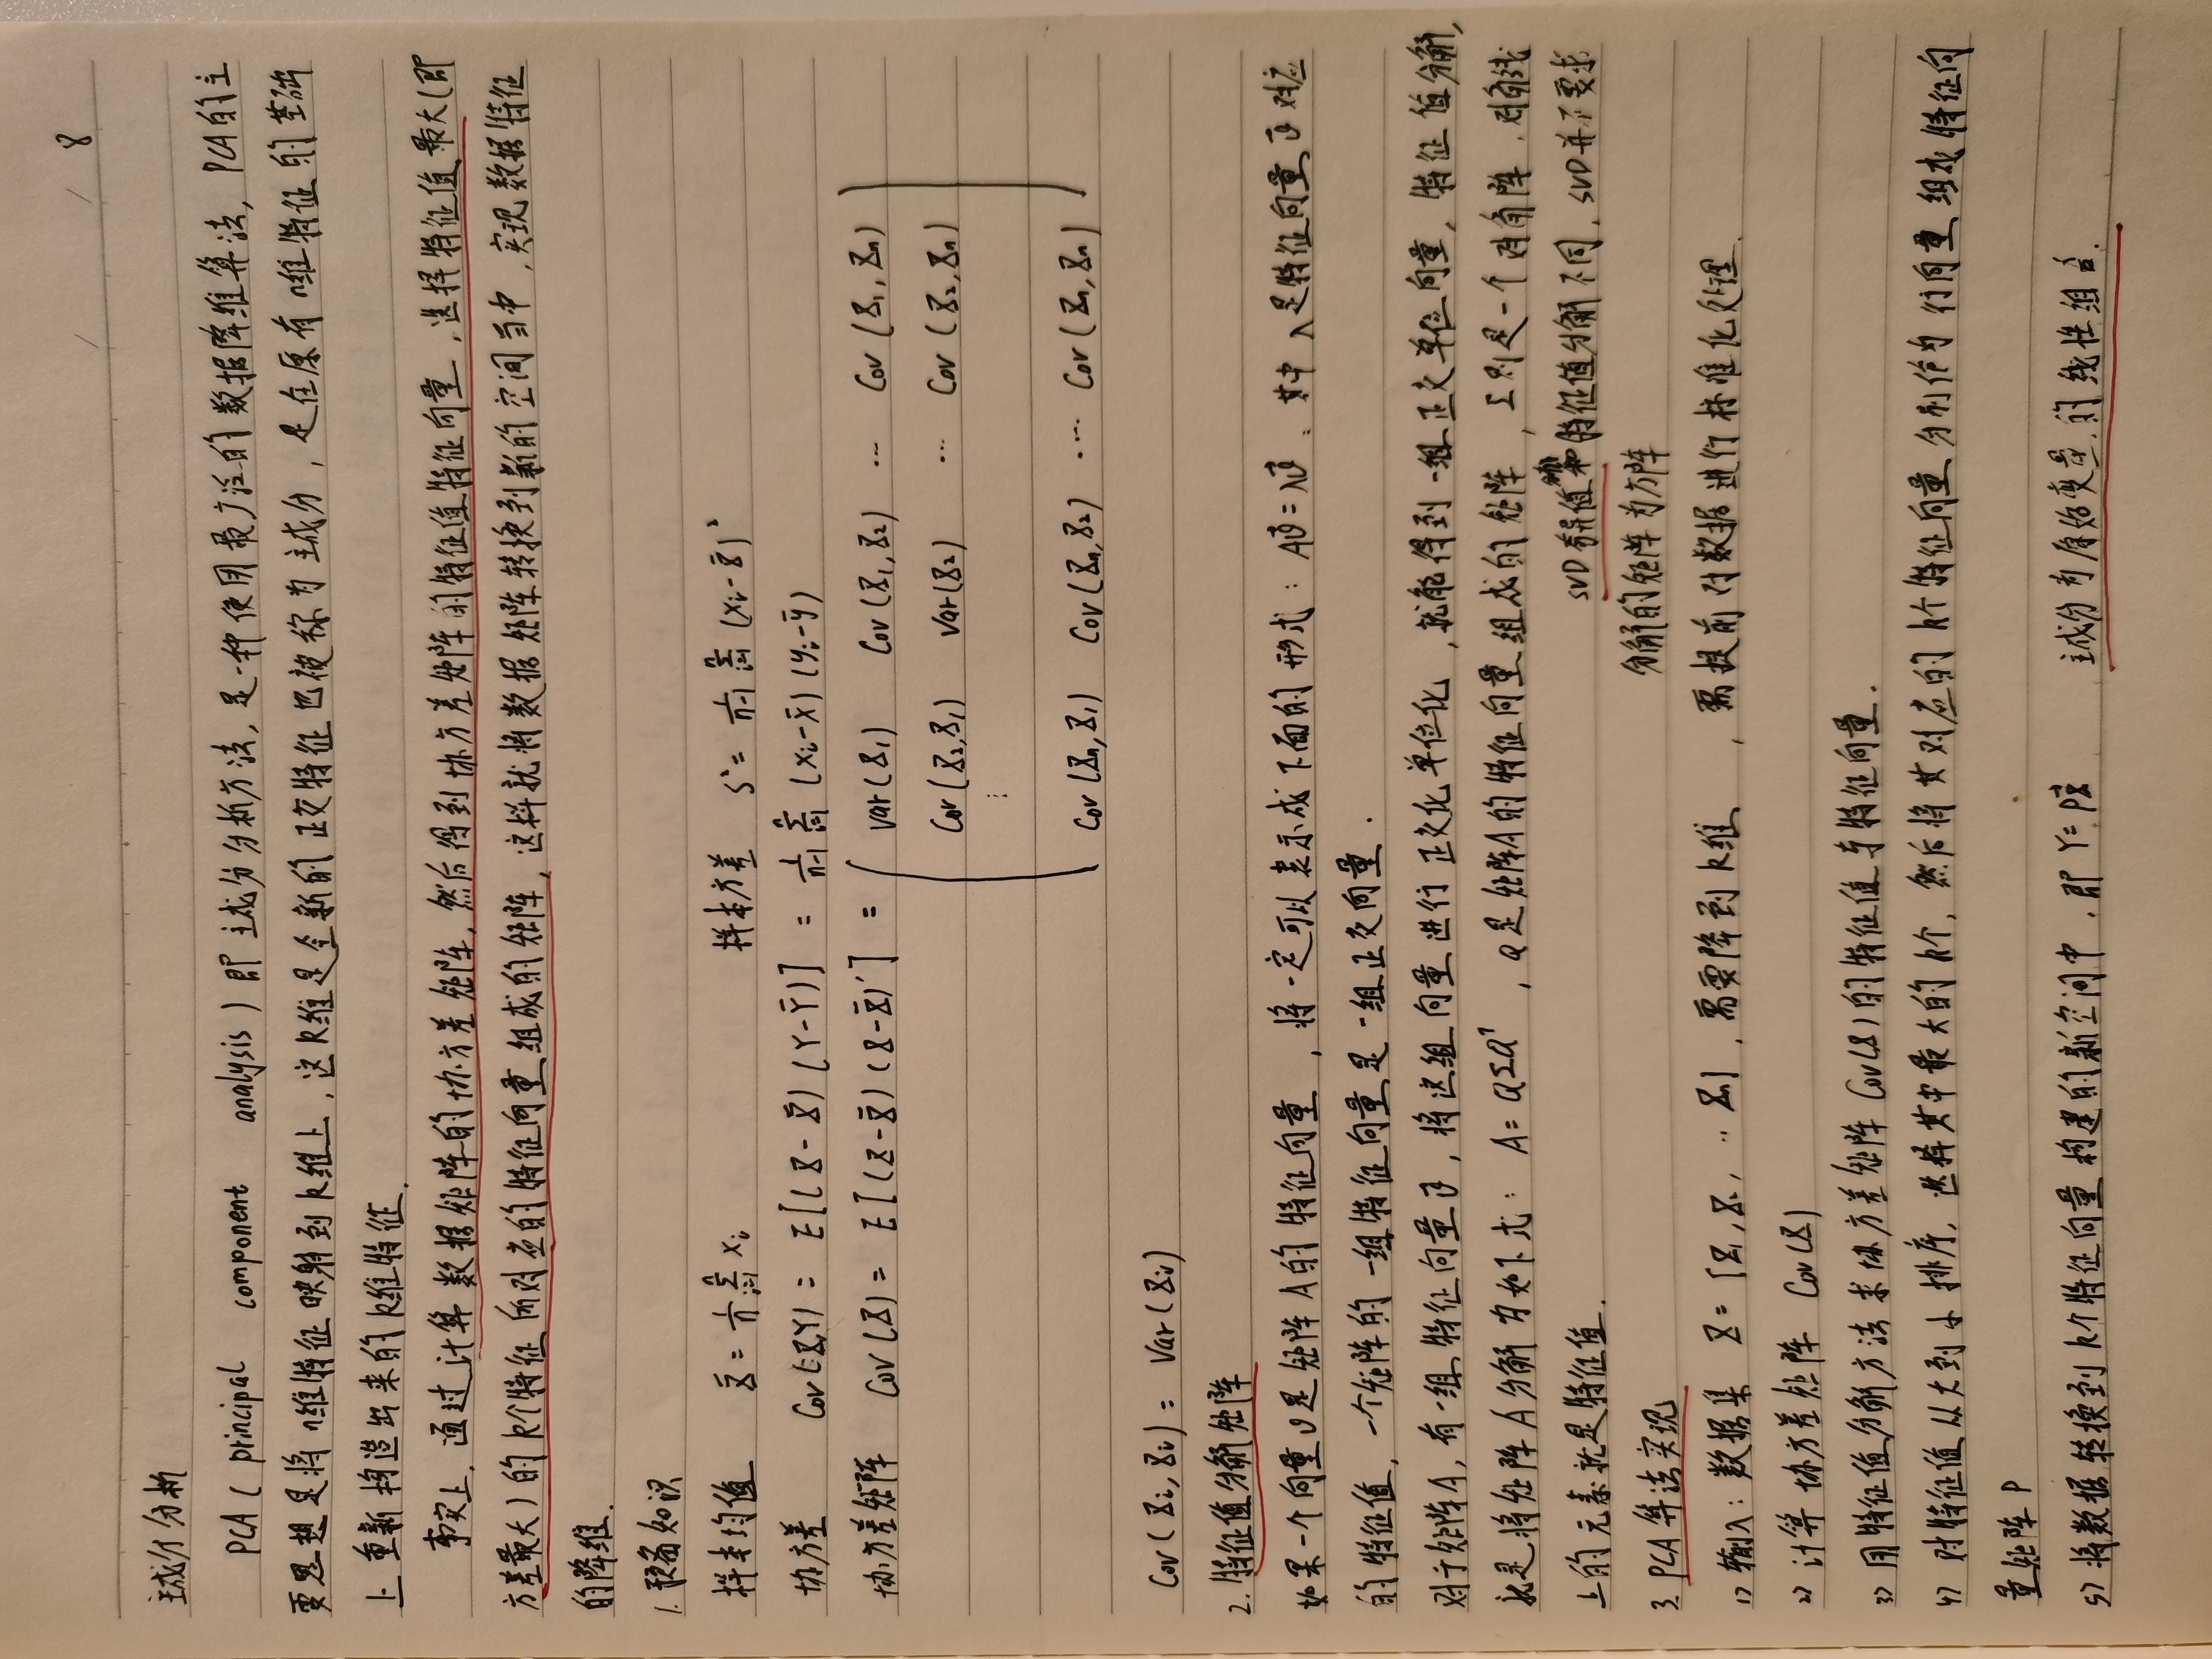 8
主成分分析
PCA ( principal component analysis ) 即主成分分析方法, 是一种使用最广泛的数据降维算法, PCA的主
要思想是将n维特征映射到k维上, 这k维是全新的正交特征也被称为主成分, 是在原有n维特征的基础
上重新构造出来的k维特征.
事实上, 通过计算数据矩阵的协方差矩阵, 然后得到协方差矩阵的特征值特征向量, 选择特征值最大(即
方差最大)的k个特征所对应的特征向量组成的矩阵, 这样就将数据矩阵转换到新的空间当中, 实现数据特征
的降维.
1. 预备知识
样本均值 X̄ = 1/n Σ(i=1..n) xi 样本方差 S² = 1/(n-1) Σ(i=1..n) (xi - X̄)²
协方差 Cov(X,Y) = E[(X-X̄)(Y-Ȳ)] = 1/(n-1) Σ(i=1..n) (xi-x̄)(yi-ȳ)
协方差矩阵 Cov(X) = E[(X-X̄)(X-X̄)'] = Var(X1) Cov(X1,X2) ... Cov(X1,Xn)
Cov(X2,X1) Var(X2) ... Cov(X2,Xn)
⋮
Cov(Xn,X1) Cov(Xn,X2) ... Cov(Xn,Xn)
Cov(Xi,Xi) = Var(Xi)
2. 特征值分解矩阵
如果一个向量v是矩阵A的特征向量, 将一定可以表示成下面的形式: Av⃗ = λv⃗. 其中λ是特征向量v⃗对应
的特征值, 一个矩阵的一组特征向量是一组正交向量.
对于矩阵A, 有一组特征向量v⃗, 将这组向量进行正交化单位化, 就能得到一组正交单位向量, 特征值分解,
就是将矩阵A分解为如下式: A = QΣQ⁻¹, Q是矩阵A的特征向量组成的矩阵, Σ则是一个对角阵, 对角线
上的元素就是特征值. SVD奇异值分解和特征值分解不同, SVD并不要求
分解的矩阵为方阵
3. PCA算法实现
1) 输入: 数据集 X = {X1, X2, ... Xn}, 需要降到k维, 需提前对数据进行标准化处理.
2) 计算协方差矩阵 Cov(X)
3) 用特征值分解方法求协方差矩阵Cov(X)的特征值与特征向量.
4) 对特征值从大到小排序, 选择其中最大的k个, 然后将其对应的k个特征向量分别作为行向量组成特征向
量矩阵P
5) 将数据转换到k个特征向量构建的新空间中, 即 Y=PX 主成分为原始变量的线性组合.